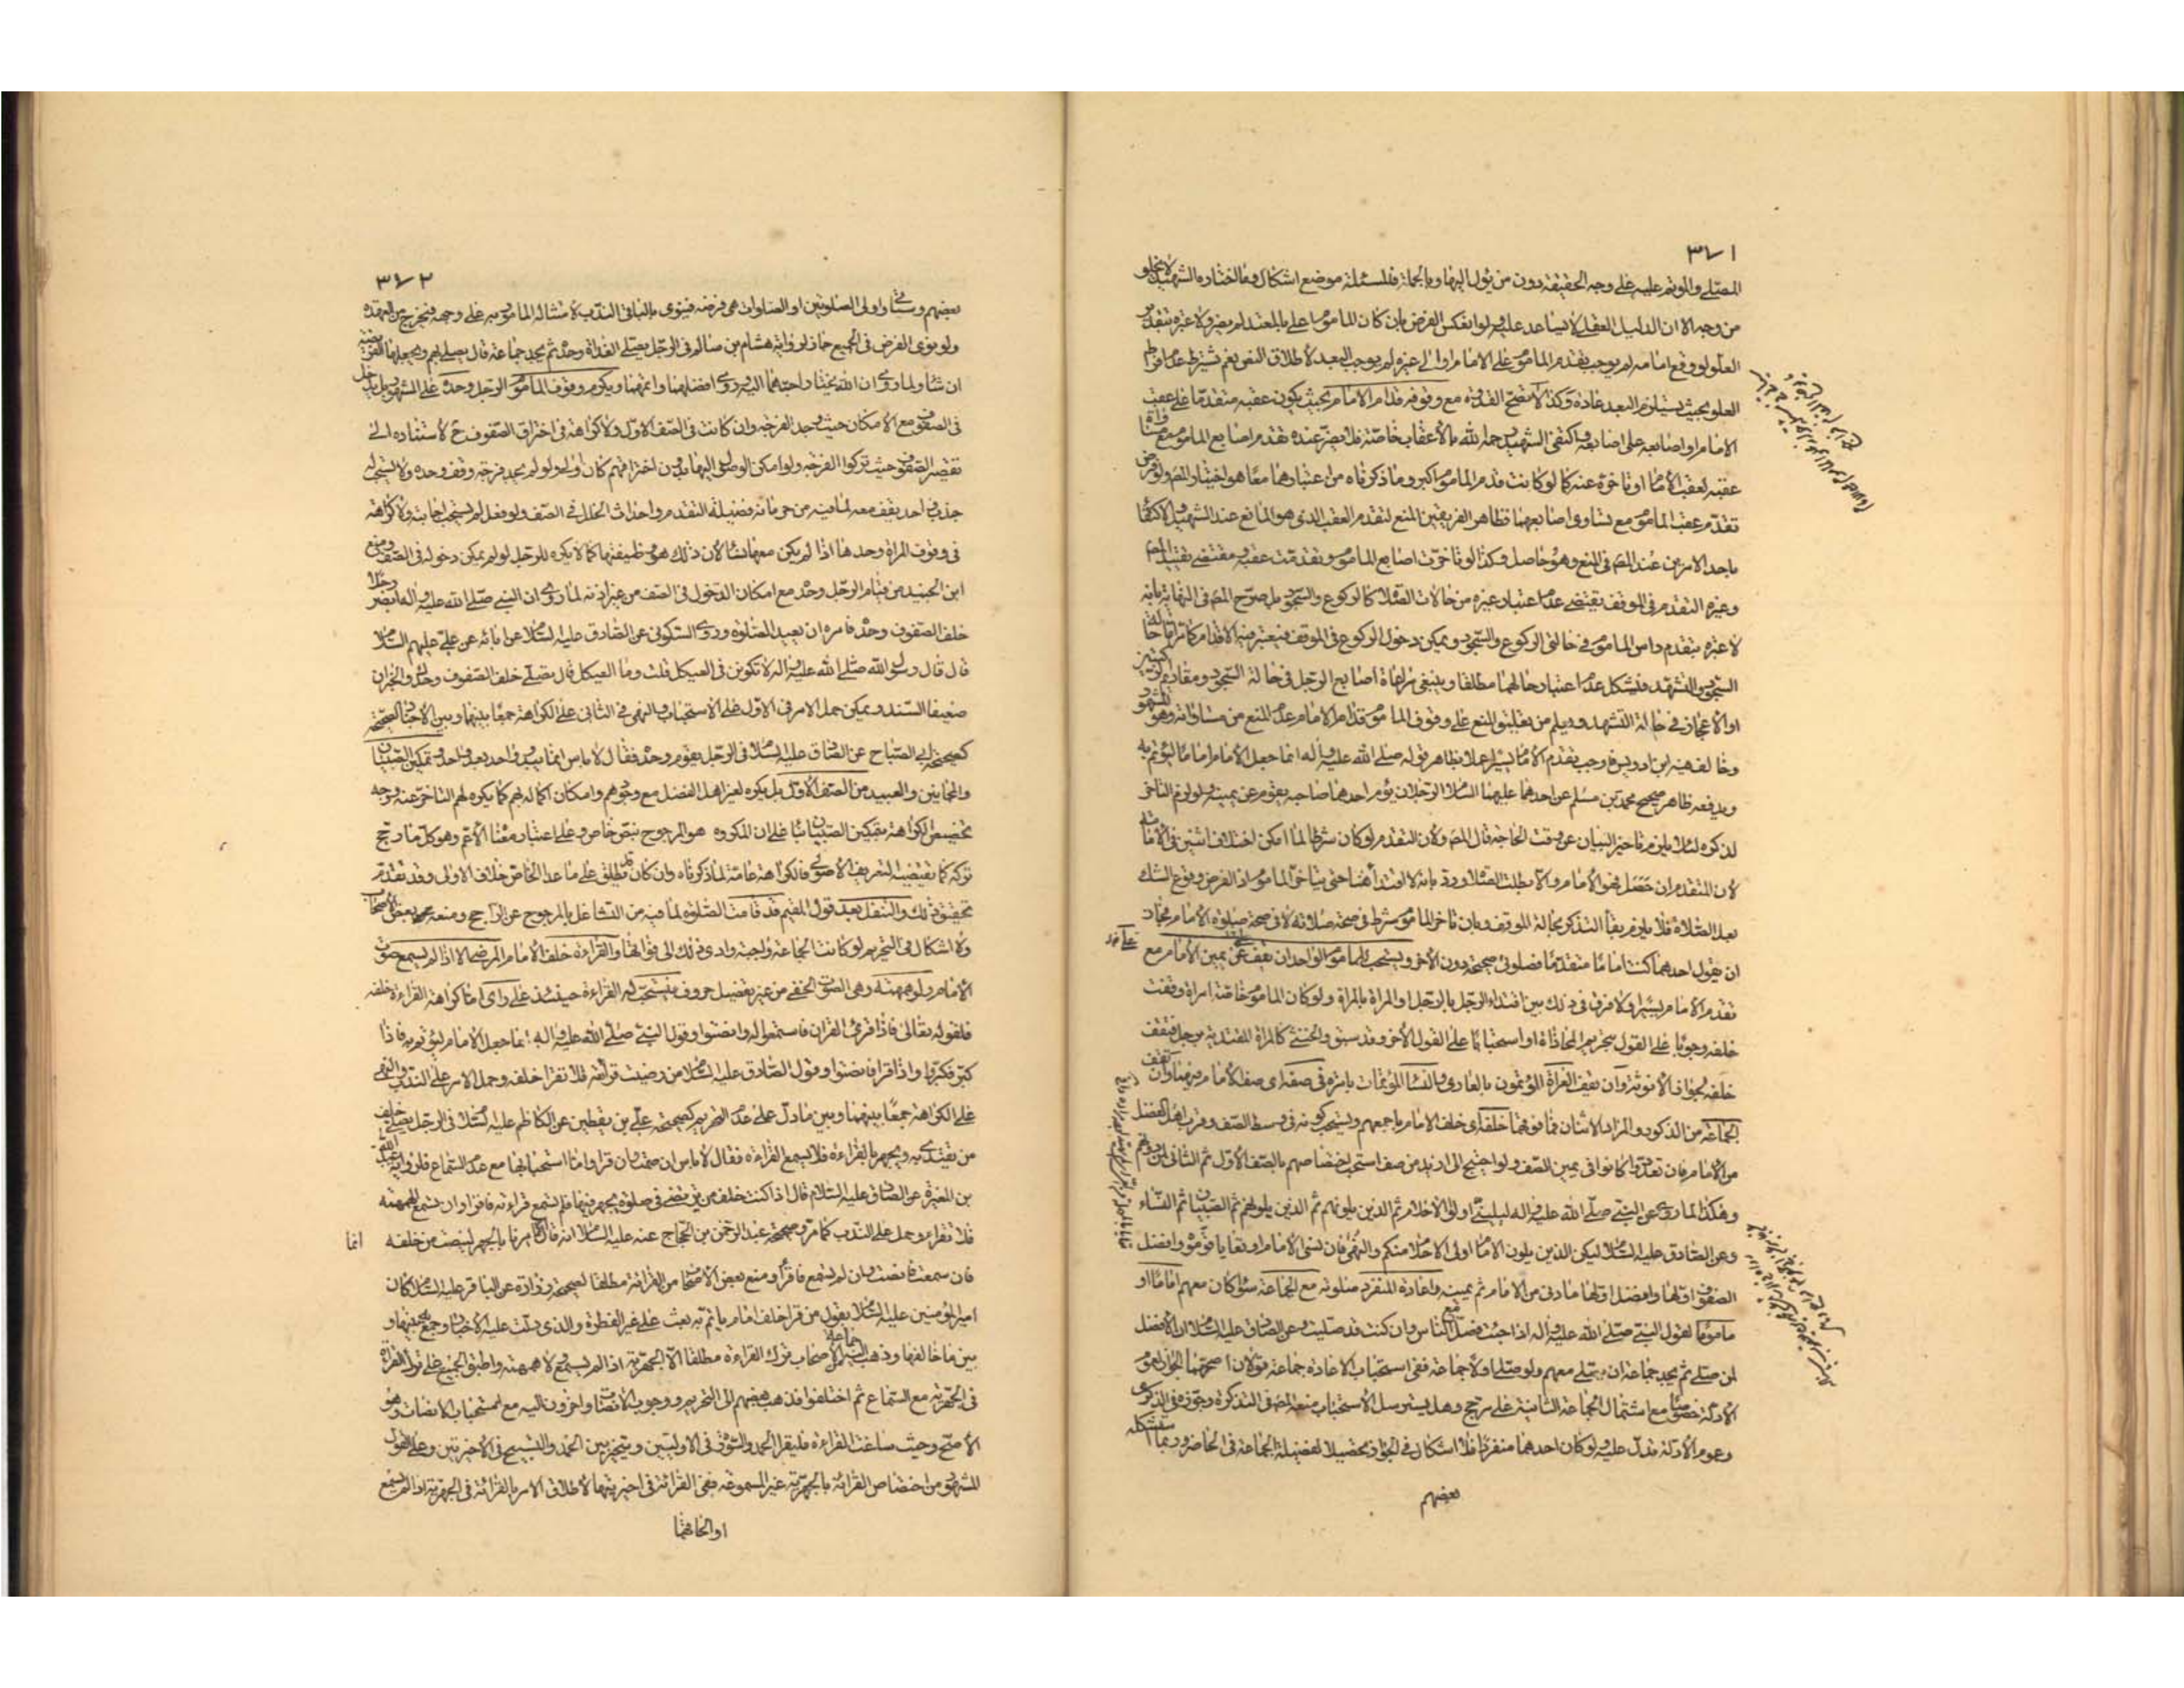 ٣٧١
المصلي والمؤتم عليه على وجه الحقيقة دون من يؤل اليها وبالجملة فللمسئلة موضع اشكال وما اختاره الشهيد لا يخلو
من وجه الا ان الدليل العقلي لا يساعد عليه ولو انعكس الفرض بان كان الماموم على
العلو لو وقع امامه لم يوجب تقدم الماموم على الامام او الى غيره لم يوجب البعد لاطلاق النص نعم يشترط عدم افراط
العلو بحيث يستلزم البعد عادة وكذا لا تصح القدوة مع وقوفه قدام الامام بحيث يكون عقبه متقدما على عقب
الامام او اصابعه على اصابعه واكتفى الشهيد رحمه الله بالاعقاب خاصة فلا يضر عنده تقدم اصابع الماموم مع مساواة
عقبه لعقب الامام او تاخره عنه كما لو كانت قدم الماموم اكبر وما ذكرناه من اعتبارهما معا هو اختيار المص ولو فرض
تقدم عقب الماموم مع تساوي اصابعهما فظاهر الفريقين المنع لتقدم العقب الذي هو المانع عند الشهيد والاكتفاء
باحد الامرين عند المص في المنع وهو حاصل وكذا لو تاخرت اصابع الماموم وتقدمت عقبه ومقتضى تقييد المص
وغيره التقدم في الموقف يقتضي عدم اعتبار غيره من حالات الصلاة كالركوع والسجود بل صرح المص في النهاية بانه
لا عبرة بتقدم راس الماموم في حالتي الركوع والسجود ويمكن دخول الركوع في الموقف فيعتبر فيه الاقدام كما مر اما حالة
السجود والتشهد فيشكل عدم اعتبار حالهما مطلقا وينبغي مراعاة اصابع الرجل في حالة السجود ومقاديم الركبتين
او الاعجاز في حالة التشهد ويعلم من تعليق المنع على وقوف الماموم قدام الامام عدم المنع من مساواته وهو المشهور
وخالف فيه ابن ادريس فاوجب تقدم الامام بيسير عملا بظاهر قوله صلى الله عليه وآله انما جعل الامام اماما ليؤتم به
ويدفعه ظاهر صحيح محمد بن مسلم عن احدهما عليهما السلام الرجلان يؤم احدهما صاحبه يقوم عن يمينه ولو لزم التاخر
لذكره لئلا يلزم تاخير البيان عن وقت الحاجة قال المص ولان التقدم لو كان شرطا لما امكن اختلاف اثنين في الامامة
لان المتقدم ان حصل فهو الامام والا بطلت الصلاة ورد بانه لا افتداء هنا حتى يتاخر الماموم اذ الفرض وقوع الشك
بعد الصلاة فلا يلزم بقاء التذكر بحالة الموقف وبان تاخر الماموم شرط في صحة صلاته لا في صحة صلوة الامام فجاز
ان يقول احدهما كنت اماما متقدما فصلوتي صحيحة دون الاخر ويستحب للماموم الواحد ان يقف عن يمين الامام مع
تقدم الامام بيسير ولا فرق في ذلك بين اقتداء الرجل بالرجل والمراة بالمراة ولو كان الماموم خاصة امراة وقفت
خلفه وجوبا على القول بتحريم المحاذاة او استحبابا على القول الاخر وقد سبق والخنثى كالمراة المقتدية برجل فتقف
خلفه لجواز الانوثة وان يقف العراة المؤتمون بالعاري والنساء المؤتمات بامراة في صفه اي صف الامام فيهما وان تقف
الجماعة من الذكور والمراد الاثنان فما فوقهما خلفه اي خلف الامام باجمعهم ويستحب كونه في وسط الصف وقرب اهل الفضل
من الامام فان تعددوا كانوا في يمين الصف ولو احتيج الى ازيد من صف استحب اختصاصهم بالصف الاول ثم الثاني لمن دونهم
وهكذا لما روي عن النبي صلى الله عليه وآله ليليني اولو الاحلام ثم الذين يلونهم ثم الذين يلونهم ثم الصبيان ثم النساء
وعن الصادق عليه السلام ليكن الذين يلون الامام اولي الاحلام منكم والنهى فان نسي الامام او تعايا قوموه وافضل
الصفوف اولها وافضل اولها ما دنى من الامام ثم يمينه واعادة المنفرد صلوته مع الجماعة سواء كان معهم اماما او
ماموما لقول النبي صلى الله عليه وآله اذا جئت فصل مع الناس وان كنت قد صليت وعن الصادق عليه السلام ان الافضل
لمن صلى ثم يجد جماعة ان يصلي معهم ولو صلى اولا جماعة ففي استحباب الاعادة جماعة قولان اصحهما الجواز لعموم
الادلة خصوصا مع اشتمال الجماعة الثانية على مرجح وهل يسترسل الاستحباب منعه المص في التذكرة وجوزه في الذكرى
وعموم الادلة تدل عليه ولو كان احدهما منفردا فلا اشكال في الجواز تحصيلا لفضيلة الجماعة في الحاضر وربما استشكله
بعضهم
٣٧٢
بعضهم وساوى اولى الصلوتين او الصلوات هي فرضه فينوي بالباقي الندب لامتثاله المامور به على وجهه فيخرج من العهدة
ولو نوى الفرض في الجميع جاز لرواية هشام بن سالم في الرجل يصلي الغداة وحده ثم يجد جماعة قال يصلي لهم ويجعلها الفريضة
ان شاء ولما روي ان الله يختار احبهما اليه وروي افضلهما واتمهما ويكره وقوف الماموم الرجل وحده على المشهور بل يدخل
في الصفوف مع الامكان حيث يجد الفرجة وان كانت في الصف الاول ولا كراهة في اختراق الصفوف ح لاستناده الى
تقصير الصفوف حيث تركوا الفرجة ولو امكن الوصول اليها بدون اختراقهم كان اولى ولو لم يجد فرجة وقف وحده ولا يستحب له
جذب احد يقف معه لما فيه من حرمانه فضيلة التقدم واحداث الخلل في الصف ولو فعل لم يستحب اجابته ولا كراهة
في وقوف المراة وحدها اذا لم يكن معها نساء لان ذلك هو وظيفتها كما لا يكره للرجل لو لم يمكن دخوله في الصف ومنع
ابن الجنيد من قيام الرجل وحده مع امكان الدخول في الصف من غير اذنه لما روي ان النبي صلى الله عليه وآله ابصر رجلا
خلف الصفوف وحده فامره ان يعيد الصلوة وروى السكوني عن الصادق عليه السلام عن ابائه عن علي عليهم السلام
قال قال رسول الله صلى الله عليه وآله لا تكونن في العيكل قلت وما العيكل قال تصلي خلف الصفوف وحدك والخبران
ضعيفا السند ويمكن حمل الامر في الاول على الاستحباب والنهي في الثاني على الكراهة جمعا بينهما وبين الاخبار الصحيحة
كصحيحة ابي الصباح عن الصادق عليه السلام في الرجل يقوم وحده فقال لا باس انما يبدو واحد بعد واحد وتمكين الصبيان
والمجانين والعبيد من الصف الاول بل يكره لغير اهل الفضل مع وجودهم وامكان اكماله لهم كما يكره لهم التاخر عنه ووجه
تخصيص الكراهة بتمكين الصبيان بناء على ان المكروه هو المرجوح بنص خاص وعلى اعتبار معناه الاعم وهو كل ما رجح
تركه كما يقتضيه التعريف الاصولي فالكراهة عامة لما ذكرناه وان كان قد يطلق على ما عدا الخاص خلاف الاولى وقد تقدم
تحقيق ذلك والتنفل بعد قول المقيم قد قامت الصلوة لما فيه من التشاغل بالمرجوح عن الراجح ومنعه بعض الاصحاب
ولا اشكال في التحريم لو كانت الجماعة واجبة وادى ذلك الى فواتها والقراءة خلف الامام المرضي الا اذا لم يسمع صوت
الامام ولو همهمة وهي الصوت الخفي من غير تفصيل حروف فيستحب له القراءة حينئذ على راي اما كراهة القراءة خلفه
فلقوله تعالى فاذا قرئ القران فاستمعوا له وانصتوا وقول النبي صلى الله عليه وآله انما جعل الامام ليؤتم به فاذا
كبر فكبروا واذا قرا فانصتوا وقول الصادق عليه السلام من رضيت قرائته فلا تقرا خلفه وحمل الامر على الندب والنهي
على الكراهة جمعا بينهما وبين ما دل على عدم التحريم كصحيحة علي بن يقطين عن الكاظم عليه السلام في الرجل يصلي خلف
من يقتدي به ويجهر بالقراءة فلا يسمع القراءة فقال لا باس ان صمت وان قرا واما استحبابها مع عدم السماع فلرواية عبد الله
بن المغيرة عن الصادق عليه السلام قال اذا كنت خلف من ترتضي في صلوة يجهر فيها فلم تسمع قراءته فاقرا وان تسمع الهمهمة
فلا تقرا وحمل على الندب كما مر وصحيحة عبد الرحمن بن الحجاج عنه عليه السلام انه قال انما امرنا بالجهر لينصت من خلفه
انما
فان سمعت فانصت وان لم تسمع فاقرا ومنع بعض الاصحاب من القرائة مطلقا لصحيحة زرارة عن الباقر عليه السلام كان
امير المؤمنين عليه السلام يقول من قرا خلف امام ياتم به بعث على غير الفطرة والذي دلت عليه الاخبار وجمع بينها و
بين ما خالفها وذهب اليه جماعة من الاصحاب ترك القراءة مطلقا الا الجهرية اذا لم يسمع ولا همهمة واطبق الجميع على ترك القراءة
في الجهرية مع السماع ثم اختلفوا فذهب بعضهم الى التحريم ووجوب الانصات واخرون اليه مع استحباب الانصات وهو
الاصح وحيث ساغت القراءة فليقرا الحمد والسورة في الاوليين ويتخير بين الحمد والتسبيح في الاخيرتين وعلى القول
المشهور من اختصاص القرائة بالجهرية غير المسموعة ففي القرائة في اخيرتيها لاطلاق الامر بالقرائة في الجهرية اذا لم يسمع
او الحاقهما